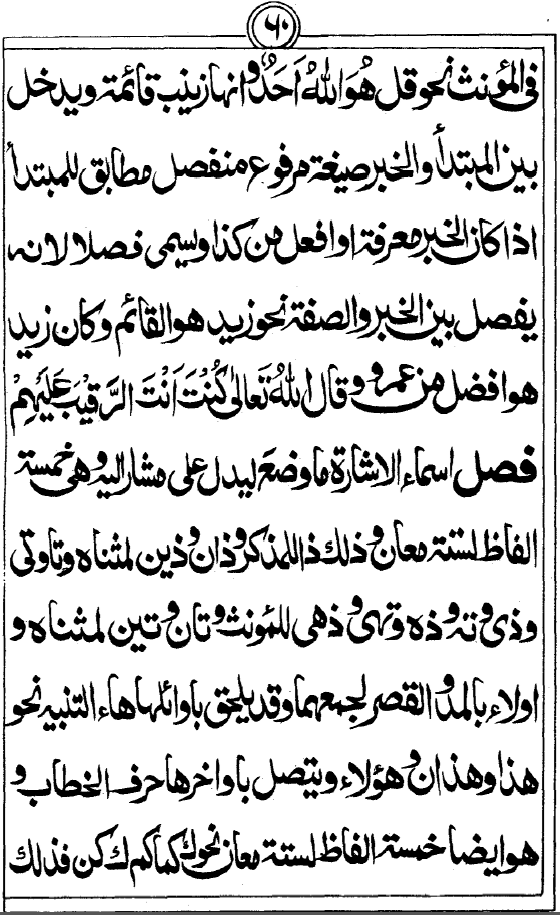 ٦٠
فى المؤنث نحو قل هُوَ اللهُ اَحَدٌ و انها زينب قائمة ويدخل
بين المبتدأ والخبر صيغة مرفوع منفصل مطابق للمبتدأ
اذا كان الخبر معرفة او افعل من كذا ويسمى فصلا لانه
يفصل بين الخبر والصفة نحو زيد هو القائم و كان زيد
هو افضل من عمرو و قال اللهُ تَعَالىٰ كُنْتَ اَنْتَ الرَّقِيْبَ عَلَيْهِمْ
فصل اسماء الاشارة ما وضعَ ليدل على مشار اليه وهى خمسة
الفاظ لستة معان و ذلك ذا للمذكر و ذان و ذين لمثناه و تا و تى
و ذى و ته و ذه و تهى و ذهى للمؤنث و تان و تين لمثناه و
اولاء بالمد و القصر لجمعهما و قد يلحق باوائلها هاء التنبيه نحو
هذا و هذان و هؤلاء و يتصل باواخرها حرف الخطاب و
هو ايضا خمسة الفاظ لستة معان نحو ك كما كم ك كن فذلك